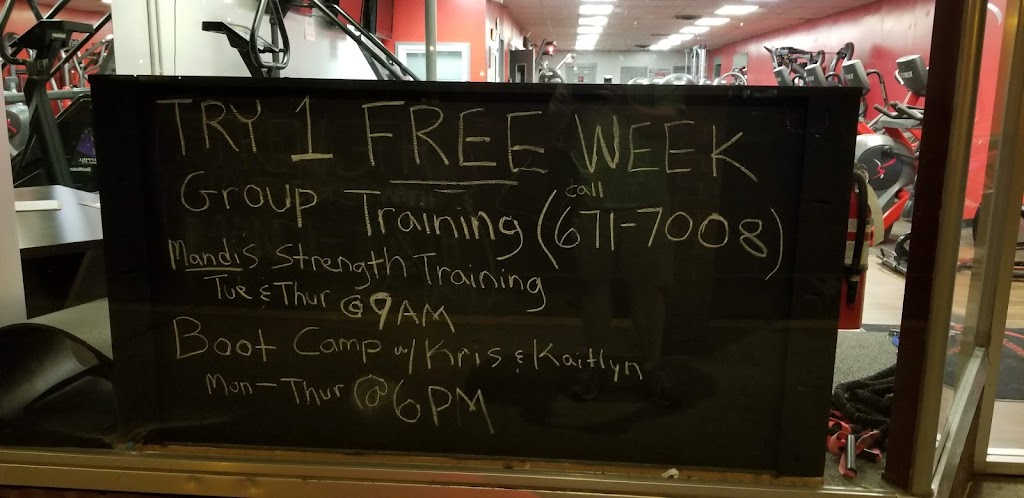 TRY 1 FREE WEEK
call
Group Training (671-7008)
Mandi's Strength Training
Tue & Thur @ 9AM
Boot Camp w/ Kris & Kaitlyn
Mon-Thur @ 6PM